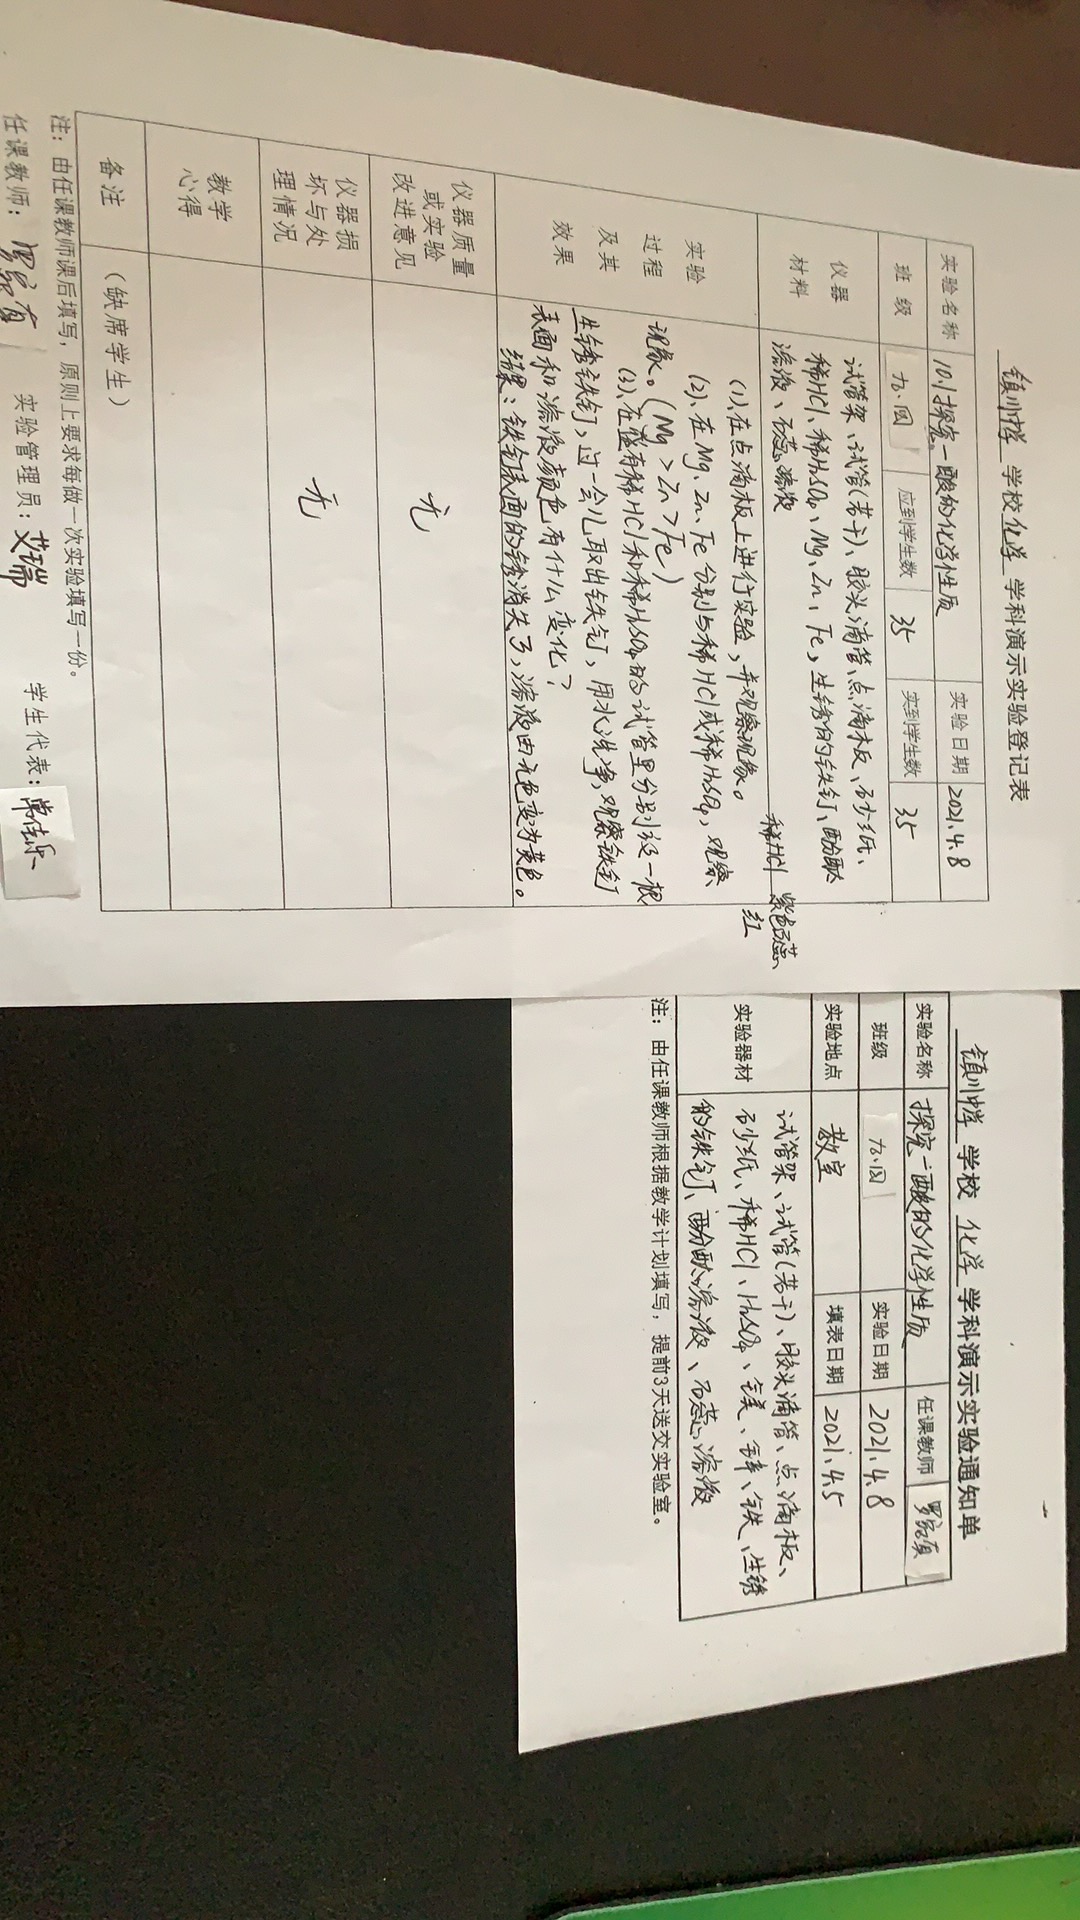 镇川中学 学校 化学 学科演示实验登记表
实验名称 10.1探究—酸的化学性质 实验日期 2021.4.8
班 级 九.四 应到学生数 35 实到学生数 35
仪器材料
试管架、试管(若干)、胶头滴管、点滴板、砂纸、
稀HCl、稀H₂SO₄、Mg、Zn、Fe,生锈的铁钉、酚酞
溶液、石蕊溶液
实验过程及其效果
稀HCl 紫色石蕊
红
(1)、在点滴板上进行实验,并观察现象。
(2)、在Mg、Zn、Fe分别与稀HCl或稀H₂SO₄,观察
现象。(Mg>Zn>Fe)
(3)、在盛有稀HCl和稀H₂SO₄的试管里分别放一根
生锈铁钉,过一会儿取出铁钉,用水洗净,观察铁钉
表面和溶液颜色有什么变化?
结果:铁钉表面的锈消失了,溶液由无色变为黄色。
仪器质量或实验改进意见 无
仪器损坏与处理情况 无
教学心得
备注 (缺席学生)
注:由任课教师课后填写,原则上要求每做一次实验填写一份。
任课教师: 实验管理员:艾瑞 学生代表:
镇川中学 学校 化学 学科演示实验通知单
实验名称 探究—酸的化学性质 任课教师
班级 九.四 实验日期 2021.4.8
实验地点 教室 填表日期 2021.4.5
实验器材
试管架、试管(若干)、胶头滴管、点滴板、
砂纸、稀HCl、H₂SO₄、镁、锌、铁、生锈
的铁钉、酚酞溶液、石蕊溶液
注:由任课教师根据教学计划填写,提前3天送交实验室。